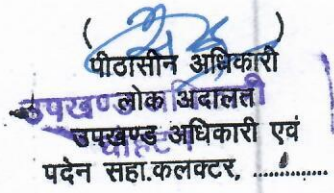 (                    )
पीठासीन अधिकारी
लोक अदालत
उपखण्ड अधिकारी एवं
पदेन सहा.कलक्टर, ............
उपखण्ड